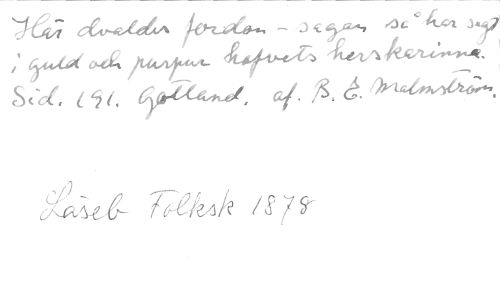 Här dvaldes fordom – sagan så har sagt
i guld och purpur hafvets herskarinna.
Sid. 191. Gotland. af. B. E. Malmström.
Läseb Folksk 1878